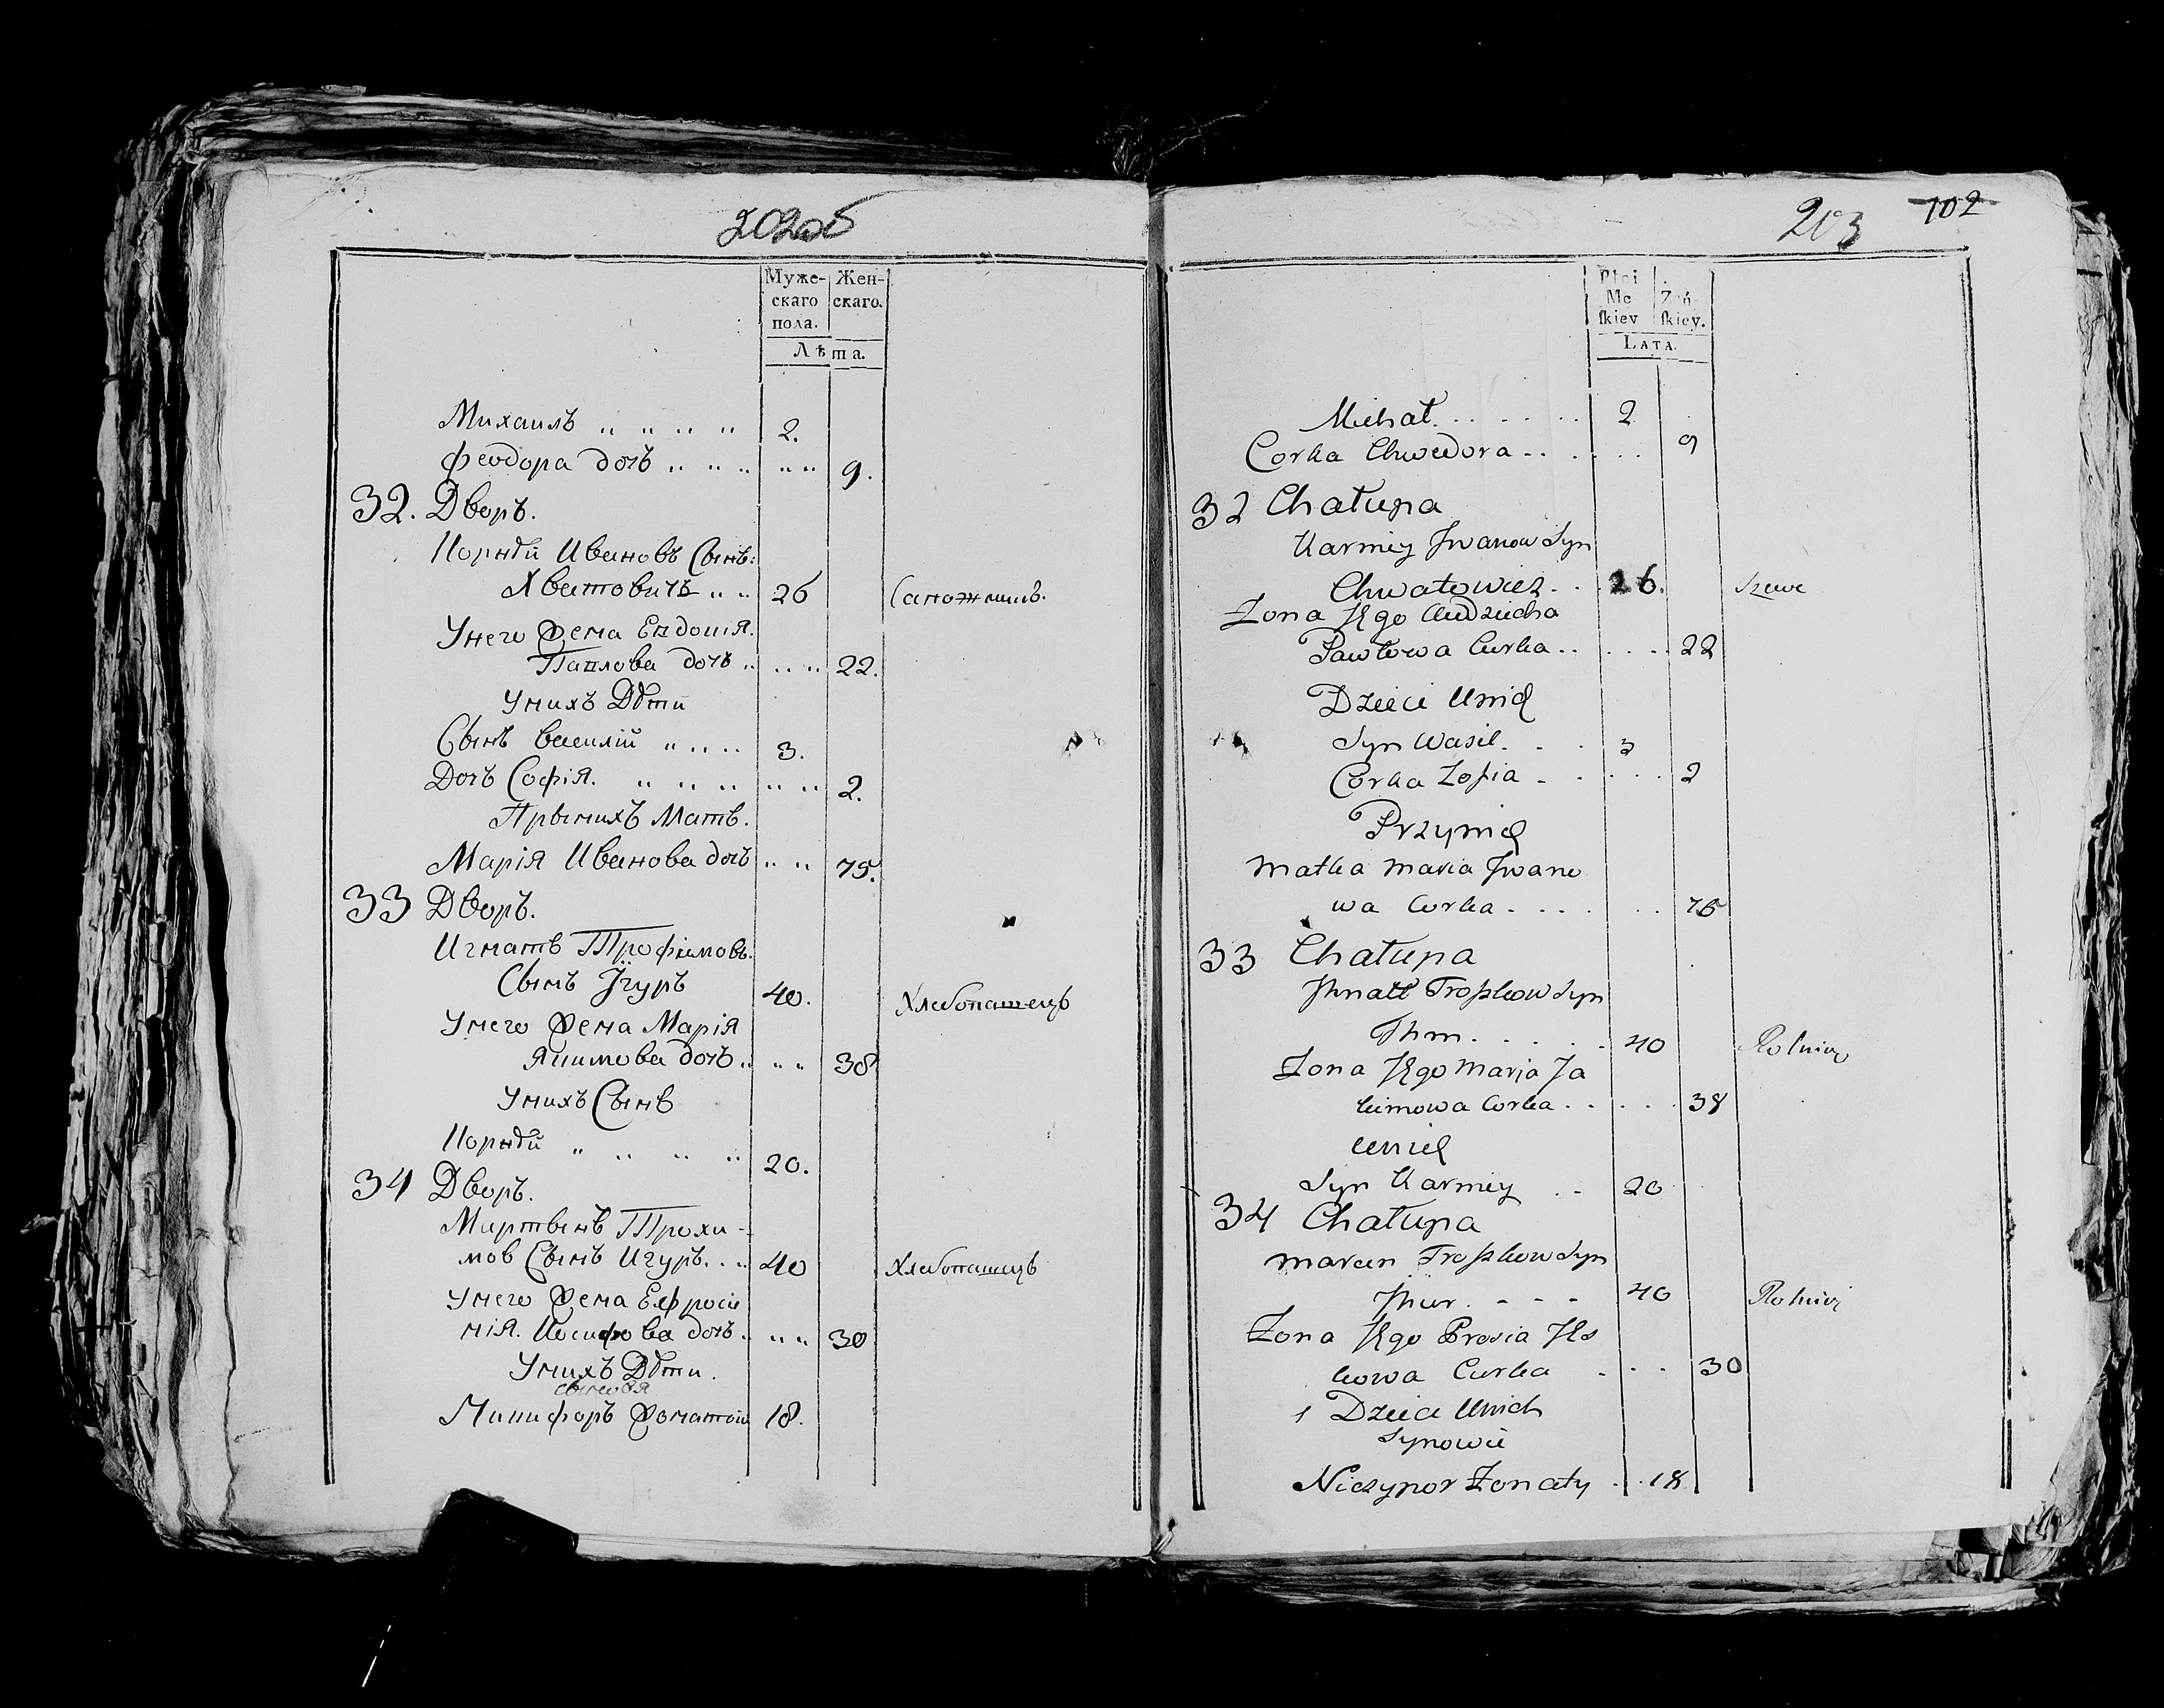 202об
Муже- Жен-
скаго скаго.
пола.
Лѣта.
Михаилъ „ „ „ „ 2.
Феодора дочь „ „ „ „ „ 9.
32. Дворъ.
Корнѣй Ивановъ Сынъ:
Хватовичъ „ „ 26 Сапожникъ.
Унего Жена Евдокія.
Павлова дочь „ „ „ 22.
Унихъ Дѣти
Сынъ Василій „ „ „ 3.
Дочь Софія. „ „ „ „ „ 2.
Прынихъ Мать.
Марія Иванова дочь „ „ 75.
33 Дворъ.
Игнатъ Трофимовъ.
Сынъ Ўгуръ 40. Хлебопашецъ
Унего Жена Марія
Якимова дочь „ „ „ 38
Унихъ Сынъ
Корнѣй „ „ „ „ 20.
34 Дворъ.
Мартынъ Трохи-
мов Сынъ Игуръ. . „ 40 Хлебопашецъ
Унего Жена Ефроси
нія. Иосифова дочь. „ „ 30
Унихъ Дѣти.
сыновя
Никифоръ Жонатой 18.
203 102
Płci
Mę Żeń-
ſkiey ſkiey.
LATA.
Michał . . . . . . 2
Corka Chwedora - . . . . 9
32 Chałupa
Karniey Jwanow Syn
Chwatowicz . . 26. Szewc
Zona Jego Audziucha
Pawłowa Curka . . . . . . 22
Dzieci Unich
Syn Wasil. . . 3
Corka Zofia - . . . . 2
Przynich
Matka Maria Jwano
wa Curka - . . . . . 75
33 Chałupa
Jhnatt Trophow Syn
Jhm . . . . . 40 Rolnicz
Zona Jego Marja Ja
kimowa Corka . . . . . 38
Unich
Syn Karniey . - 20
34 Chałupa
Marcin Trophow Syn
Jhur . - - - 40 Rolnicz
Zona Jego Prosia
kowa Curka . . . 30
Dzieci Unich
Synowie
Niczypor Zonaty . . 18